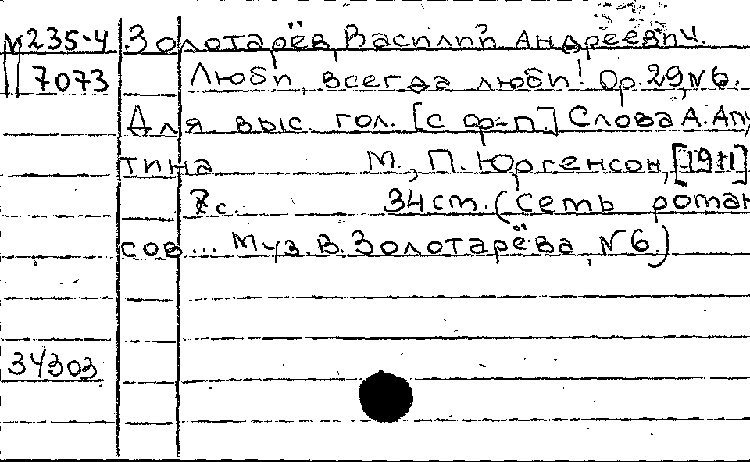 М235-4 Золотарёв, Василий Андреевич.
7073 Люби, всегда люби! Ор. 29, №6.
Для выс. гол. [с ф-п.] Слова А. Апу
тина М., П. Юргенсон, [1911]
7 с. 34 ст. (Семь роман
сов... Муз. В. Золотарёва, №6.)
34303